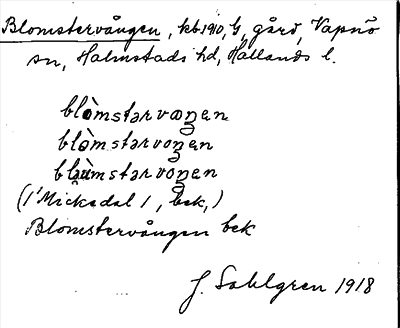 Blomstervången, kb 1910, G, gård, Vapnö
sn, Halmstads hd, Hallands l.
blòmstarvaŋen
blòmstarvoŋen
blæùmstarvoŋen
(1 Mickedal 1, bek,)
Blomstervången bek
J. Sahlgren 1918